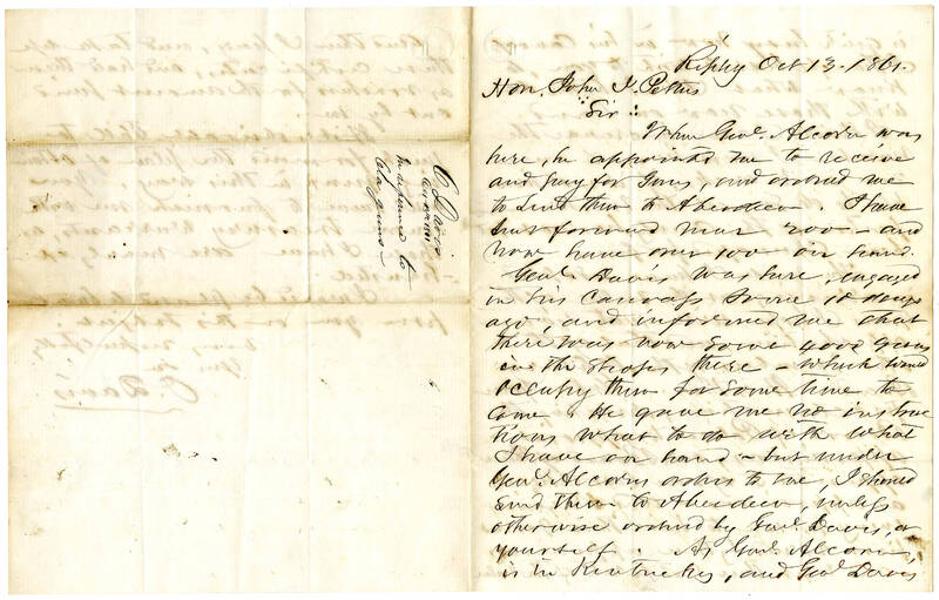 Ripley Oct 13. 1861.
Hon. John J. Pettus
Sir :
When Genl. Alcorn was
here, he appointed me to receive
and pay for Guns, and ordered me
to send them to Aberdeen. I have
sent forward near 200 - and
now have over 100 on hand.
Genl. Davis was here, engaged
in his Canvass some 10 days
ago, and informed me that
there was now some 4000 guns
in the shops there - which would
occupy them for some time to
come. He gave me no instruc
tions what to do with what
I have on hand - but under
Genl. Alcorns orders to me, I should
send them to Aberdeen, unless
otherwise ordered by Genl. Davis, or
yourself. As Genl. Alcorn,
is in Kentucky, and Genl Davis
O. Davis
In reference to
Cola guns